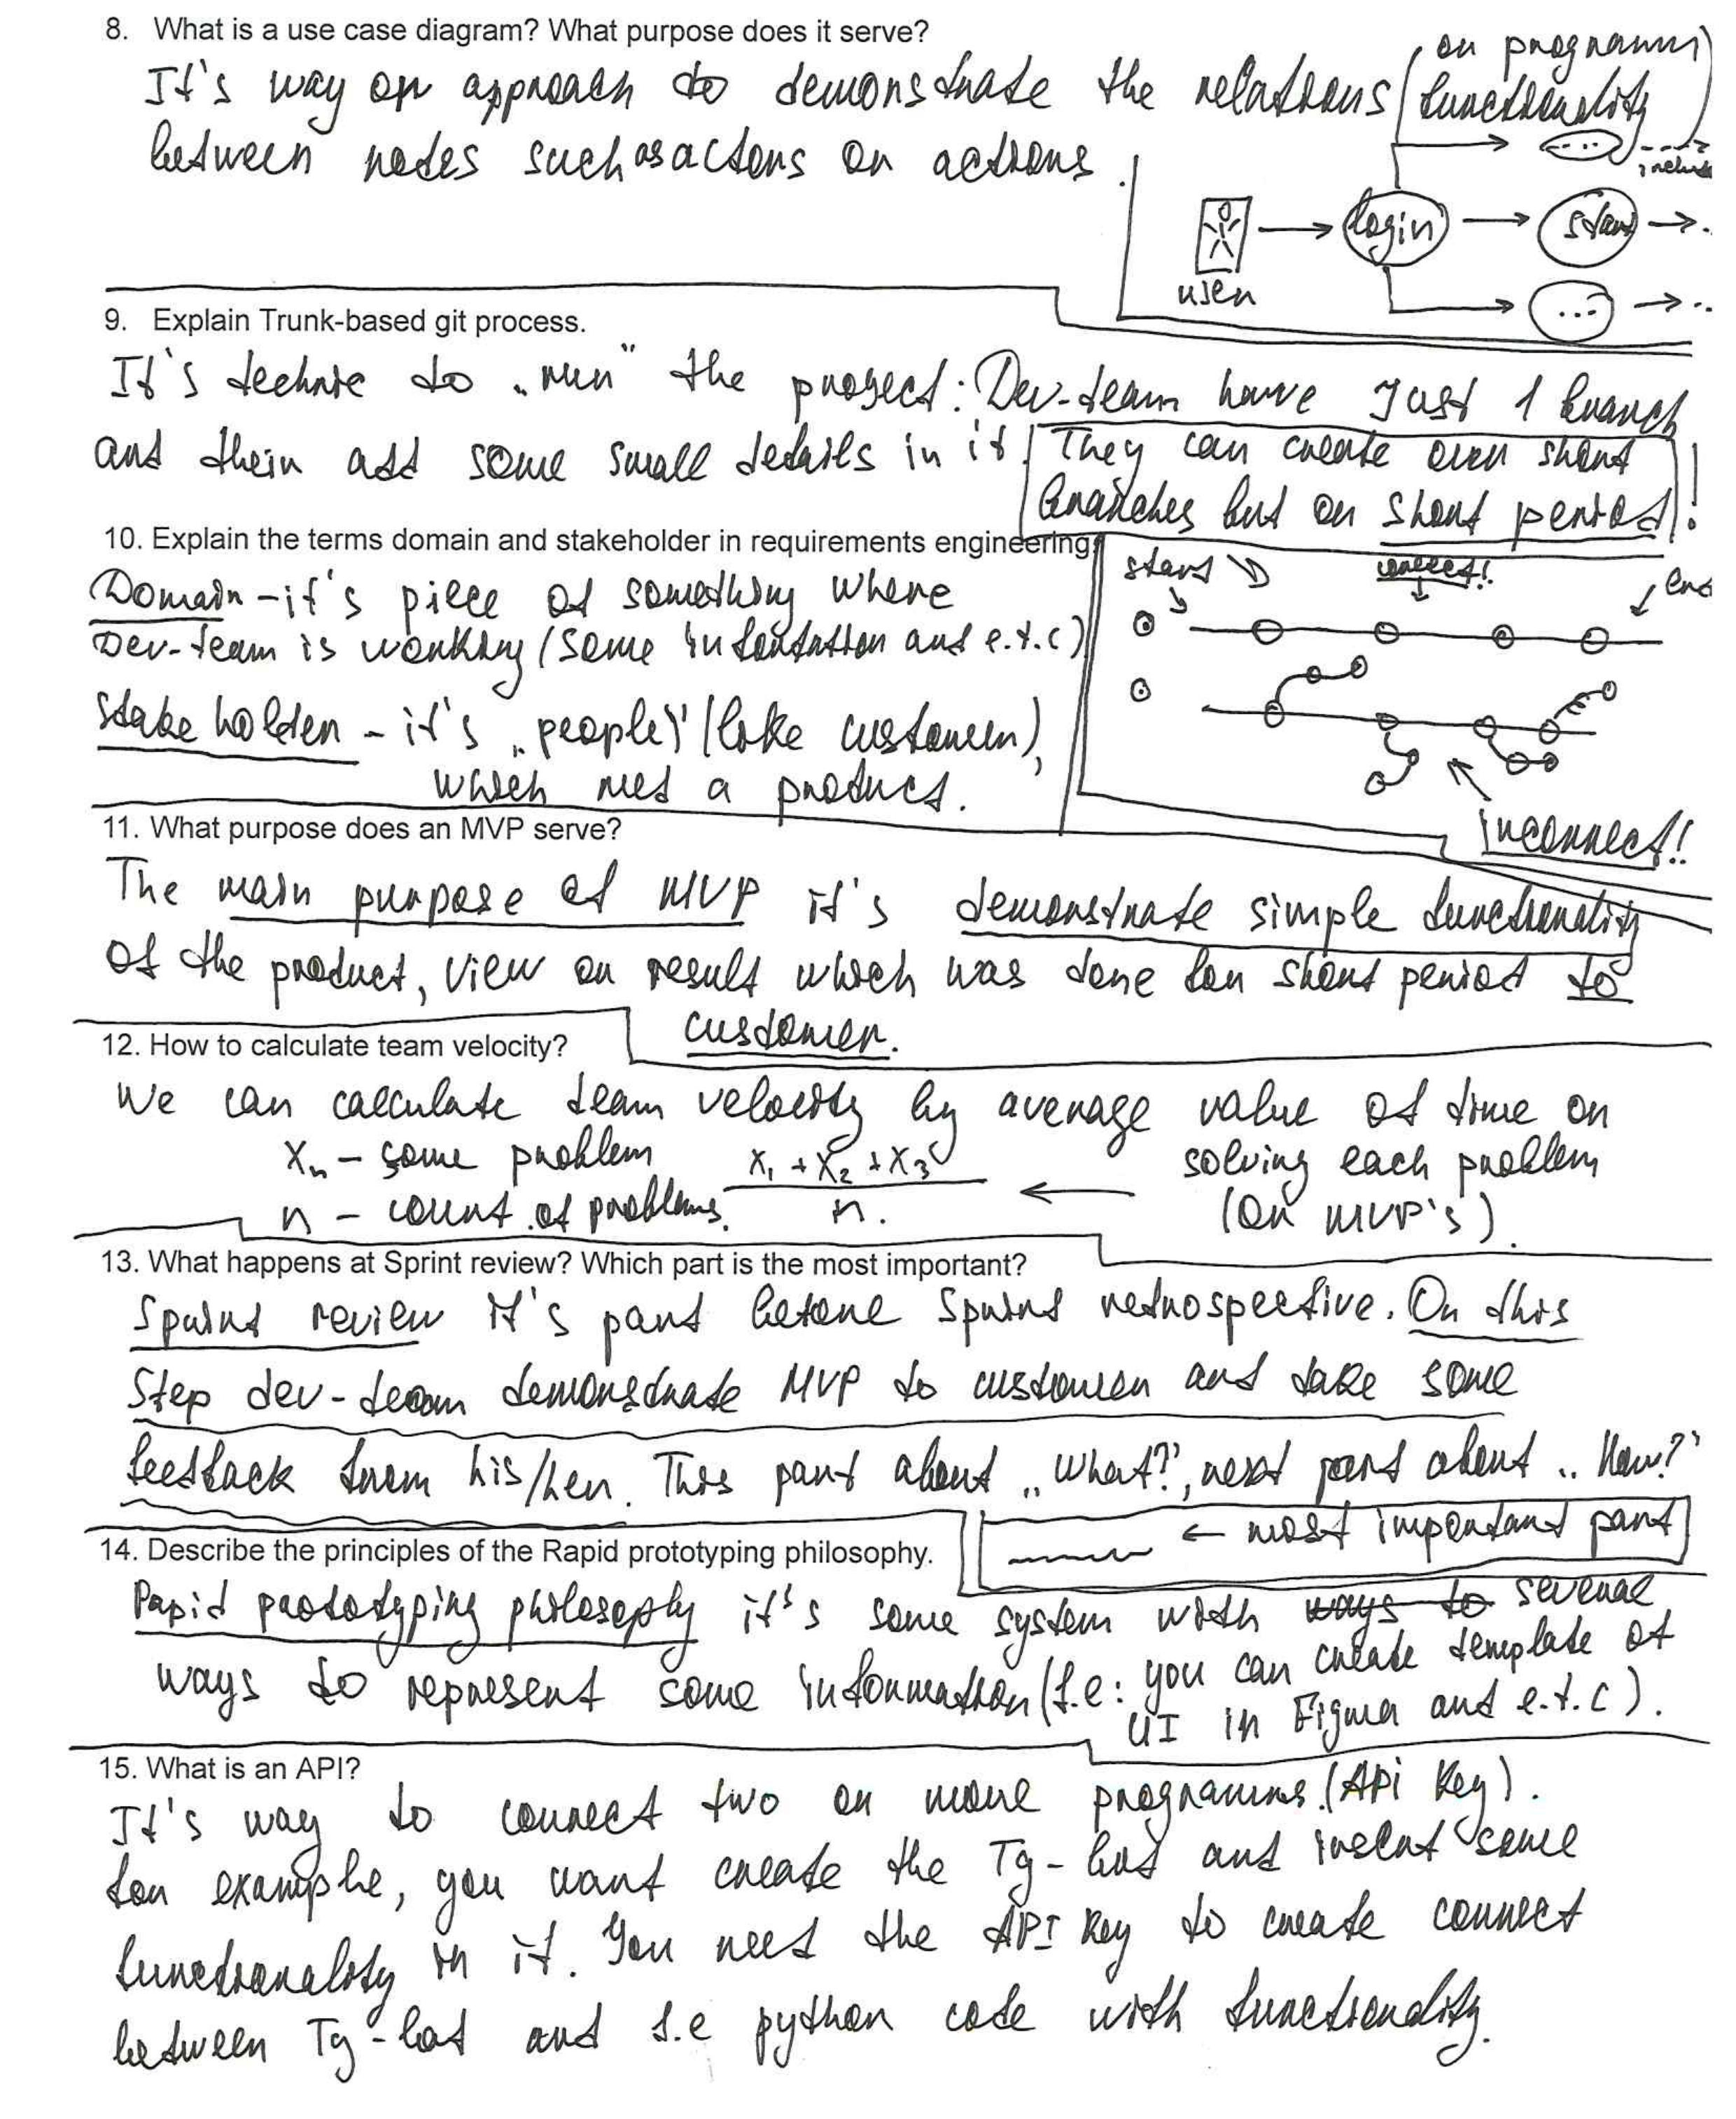 8. What is a use case diagram? What purpose does it serve?
It's way or approach to demonstrate the relations (or programm functionality)
between nodes such as actors or actions.
include
user
login
start
...
...
9. Explain Trunk-based git process.
It's technic to „run" the project: Dev-team have Just 1 branch
and their add some small details in it. They can create own short
branches but on short period!
10. Explain the terms domain and stakeholder in requirements engineering.
Domain - it's piece of something where
Dev-team is working (some and e.t.c)
stake holder - it's „people" (like customer),
which need a product.
start
correct!
end
incorrect!!
11. What purpose does an MVP serve?
The main purpose of MVP it's demonstrate simple functionality
of the product, view or result which was done for short period to
customer.
12. How to calculate team velocity?
We can calculate team velocity by average value of time on
solving each problem
(Or MVP's).
Xn - some problem
n - count of problems.
X1 + X2 + X3
n.
13. What happens at Sprint review? Which part is the most important?
Sprint review it's part before Sprint retrospective. On this
Step dev-team demonstrate MVP to customer and take some
feedback from his/her. This part about „what?", next part about „How?"
← most important part
14. Describe the principles of the Rapid prototyping philosophy.
Rapid prototyping philosophy it's some system with ways to several
ways to represent some information (f.e: you can create template of
UI in Figma and e.t.c).
15. What is an API?
It's way to connect two or more programms. (Api key).
for example, you want create the Tg-bot and insert some
functionality in it. You need the API key to create connect
between Tg-bot and f.e python code with functionality.